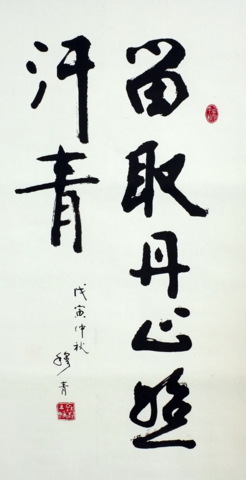 留取丹心照
汗青
戊寅仲秋
穆青